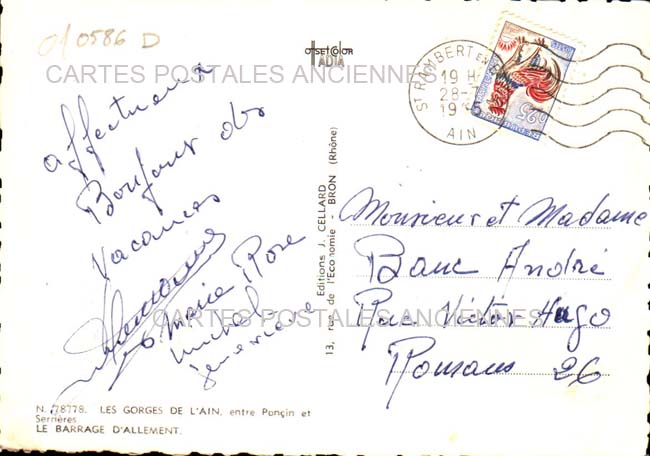 0586 D
OFFSET COLOR
IADIA
CARTES POSTALES ANCIENNES
ST RAMBERT EN
19 H
28-7
19
AIN
0,25
affectueux
Bonjour des
Vacances
Marie Rose
Michel
Editions J. CELLARD
13, rue de l'Economie - BRON (Rhône)
Monsieur et Madame
Banc André
Rue Victor Hugo
Romans 26
CARTES POSTALES ANCIENNES
N. 78778. LES GORGES DE L'AIN, entre Ponçin et
Serrières
LE BARRAGE D'ALLEMENT.